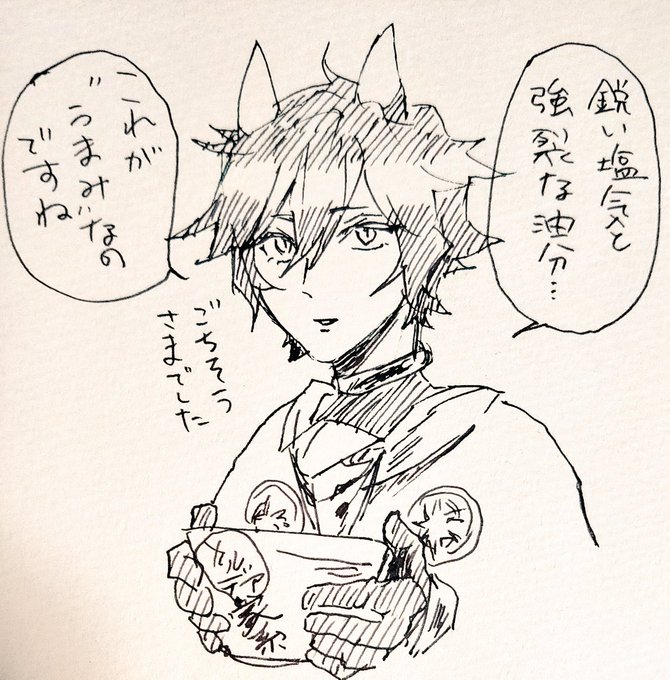 鋭い塩気と
強烈な油分…
これが
"うまみ"なの
ですね
ごちそう
さまでした
カルデア